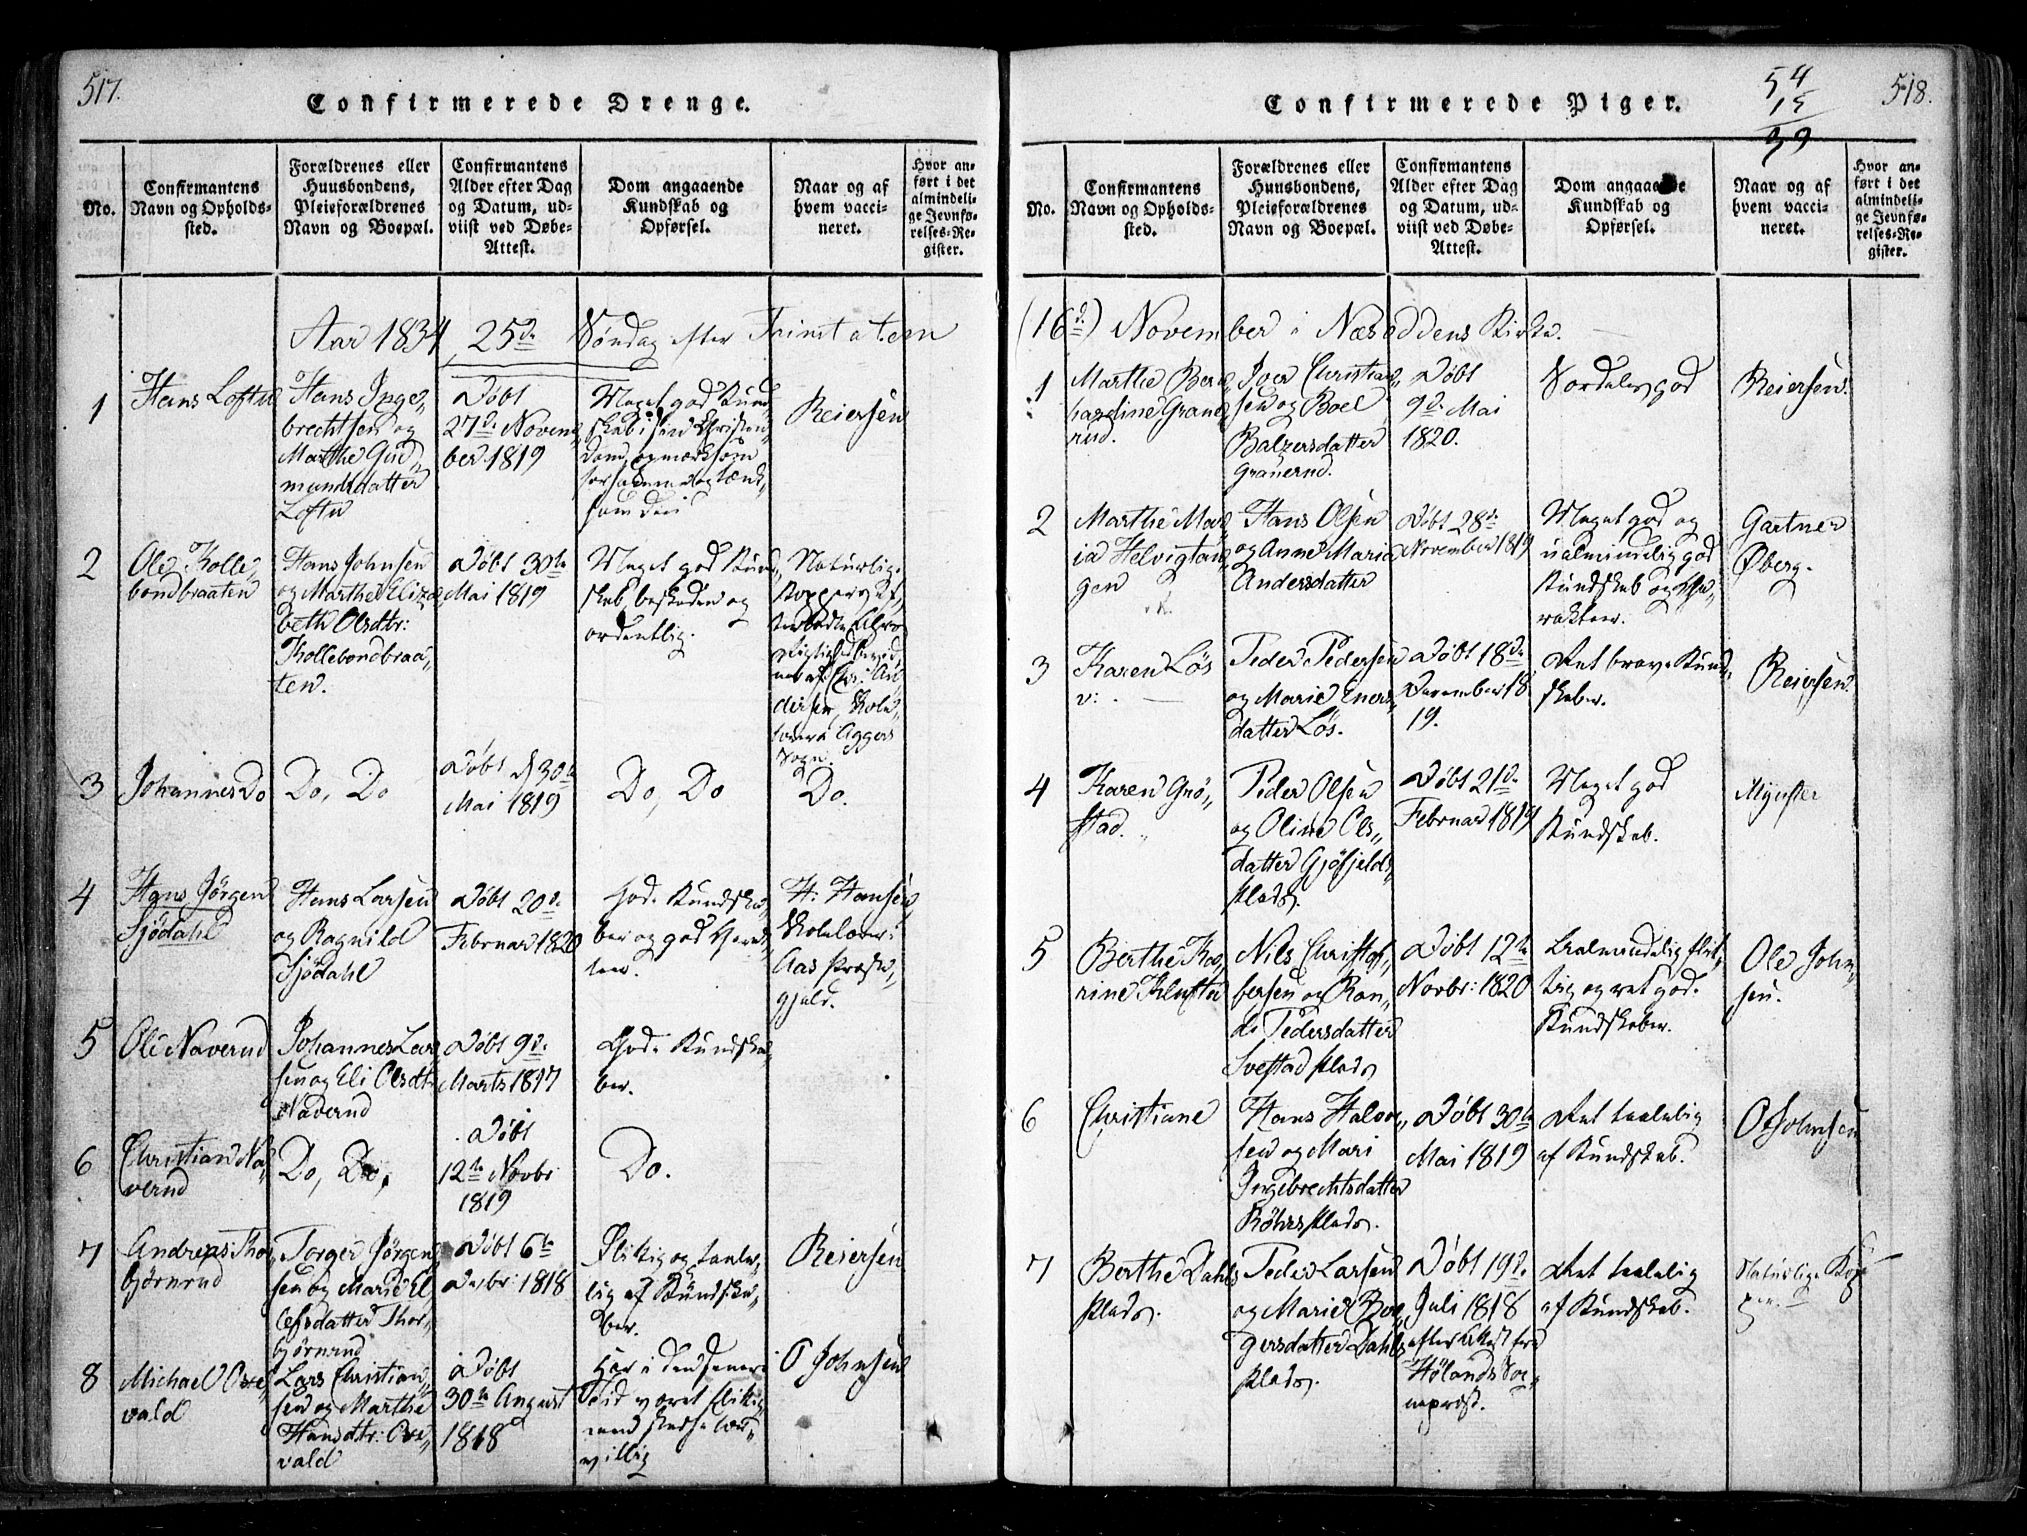 517.
Confirmerede Drenge.
No.
Confirmantens
Navn og Opholds-
sted.
Forældrenes eller
Huusbondens,
Pleieforældrenes
Navn og Boepæl.
Confirmantens
Alder efter Dag
og Datum, ud-
viist ved Døbe-
Attest.
Dom angaaende
Kundskab og
Opførsel.
Naar og af
hvem vacci-
neret.
Hvor an-
ført i det
almindeli-
ge Jevnfø-
relses-Re-
gister.
Aar 1834, 25de Søndag efter Trinitatem
1
Hans Loftu
Hans Inge„
brechtsen og
Marthe Gud„
mundsdatter
Loftu
Døbt
27de Novem„
ber 1819
Meget god Kund„
skab i sin Christen„
dom, opmærksom
Reiersen
2
Ole Kolle„
bondbraaten
Hans Johnsen
og Marthe Eliza„
beth Olsdtr:
Kollebondbraa„
ten.
Døbt 30te
Mai 1819
Meget god Kund„
skab, beskeden og
ordentlig.
Naturlige
Kopper
Aggers
Sogn.
3
Johannes Do
Do, Do
Døbt d 30te
Mai 1819
Do, Do
Do.
4
Hans Jörgen
Sjödahl
Hans Larsen
og Ragnild
Sjödahl
Døbt 20de
Februar 1820
Gode Kundska„
ber og god Charak„
teer.
H: Hansen,
Skolelærer i
Aas Præste„
gjeld.
5
Ole Naverud
Johannes Lar„
sen og Eli Olsdtr
Naverud
Døbt 9de
Marts 1817
Gode Kundska„
ber.
6
Christian Na„
verud
Do, Do,
Døbt
12te Novbr
1819
Do.
7
Andreas Thor„
bjørnrud
Torger Jørgen„
sen og Marie El„
lefsdatter Thor„
bjørnrud
Døbt 6te
Decbr: 1818
Flittig og taale„
lig af Kundska„
ber.
Reiersen
8
Michael Ove„
vald
Lars Christian„
sen og Marthe
Hansdtr: Ove„
vald
Døbt
30te August
1818
Har i den senere
Tid været flittig
villig
O Johnsen
518.
54
15
99
Confirmerede Piger.
No.
Confirmantens
Navn og Opholds-
sted.
Forældrenes eller
Huusbondens,
Pleieforældrenes
Navn og Boepæl.
Confirmantens
Alder efter Dag
og Datum, ud-
viist ved Døbe-
Attest.
Dom angaaende
Kundskab og
Opførsel.
Naar og af
hvem vacci-
neret.
Hvor an-
ført i det
almindeli-
ge Jevnfø-
relses-Re-
gister.
(16de) November i Næsoddens Kirke.
1
Marthe Bern„
hardine Graue„
rud.
Iver Christian„
sen og Boel
Balzersdatter
Grauerud.
Døbt
9de Mai
1820.
Særdeles god
Reiersen.
2
Marthe Mar„
ia Helvigtan„
gen
Hans Olsen
og Anne Marie
Andersdatter
Døbt 28de
November 1819
Meget god og
ualmindelig god
Kundskab og Cha„
rakteer.
Gartner
Øberg.
3
Karen Løs
v:
Peder Pedersen
og Marie Eners„
datter Løs.
Døbt 18de
December 18
19.
Ret brave Kund„
skaber.
Reiersen.
4
Karen Grö„
stad.
Peder Olsen
og Oline Ols„
datter Gjöfjelds
Plads.
Døbt 21de
Februar 1819
Meget god
Kundskab.
Mynster
5
Berthe Ka„
rine Klufta
Nils Christof„
fersen og Ran„
di Pedersdatter
Svestad Plads
Døbt 12te
Novbr: 1820
Ualmindelig flit„
tig og ret gode
Kundskaber.
Ole John„
sen.
6
Christiane
Hans Halvor„
sen og Mari
Ingebrechtsdatter
Röhrs Plads.
Døbt 30te
Mai 1819
Ret taalelig
af Kundskab.
O Johnsen
7
Berthe Dahls
Plads.
Peder Larsen
og Marie Bor„
gersdatter Dahls
Plads.
Døbt 19de
Juli 1818
efter Attest fra
Hölands Sog„
neprest.
Ret taalelig
af Kundskab.
Naturlige Kop„
per.